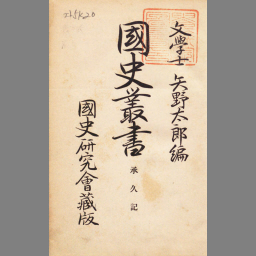 文學士 矢野太郎編
國史叢書
承久記
國史研究會藏版